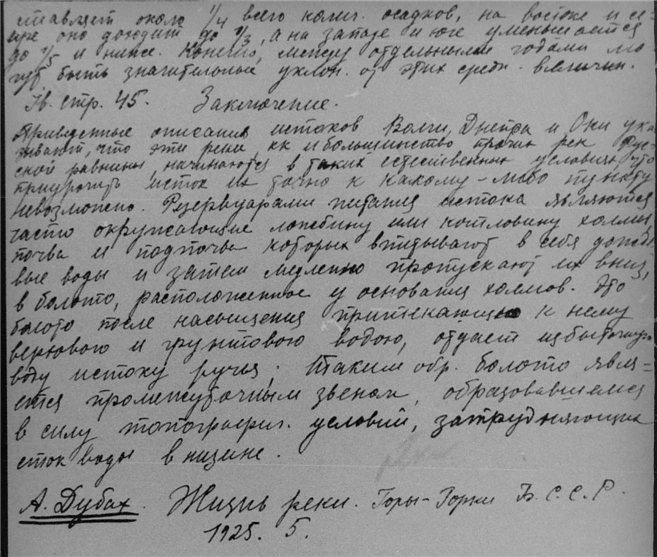 ставляет около 1/4 всего колич. осадков, на востоке и се-
вере оно доходит до 1/3, а на западе и юге уменьшается
до 1/5 и ниже. Конечно, между отдельными годами мо-
гут быть значительные уклон. от этих средн. величин.
Iв. стр. 45. Заключение.
Приведенные описания истоков Волги, Днепра и Оки ука-
зывают, что эти реки, кк и большинство прочих рек Рус-
ской равнины начинаются в таких естественных условиях, что
приурочить исток их точно к какому-либо пункту
невозможно. Резервуарами питания истока являются
часто окружающие ложбину или котловину холмы,
почва и подпочва которых впитывают в себя дожде-
вые воды и затем медленно пропускают их вниз,
в болото, расположенное у основания холмов. Это
болото после насыщения притекающею к нему
верховою и грунтовою водою, отдает избыточную
воду истоку ручья. Таким обр. болото явля-
ется промежуточным звеном, образовавшемся
в силу топографич. условий, затрудняющих
сток воды в низине.
А. Дубах. Жизнь реки. Горы-Горки Б.С.С.Р.
1925. 5.